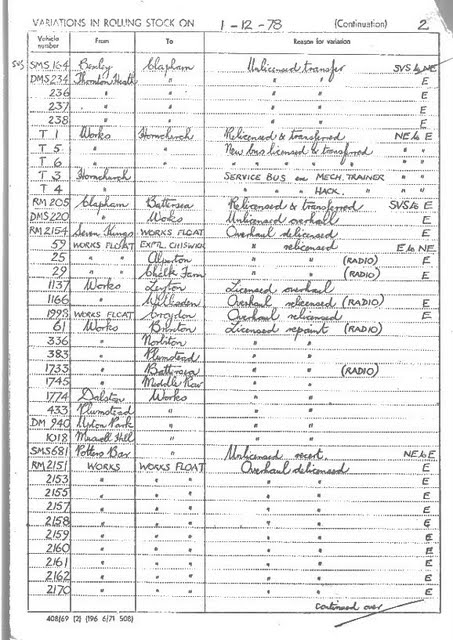 VARIATIONS IN ROLLING STOCK ON 1-12-78 (Continuation) 2
Vehicle number From To Reason for variation
SVS SMS 164 Bexley Clapham Unlicensed transfer SVS to NE
DMS 234 Thornton Heath " " " E
236 " " " " E
237 " " " " E
238 " " " " E
T 1 Works Hornchurch Relicensed & transferred NE to E
T 5 " " New bus licensed & transferred "
T 6 " " " " " " "
T 3 Hornchurch SERVICE BUS ex MECH. TRAINER " "
T 4 " " " HACK. " "
RM 205 Clapham Battersea Relicensed & transferred SVS to E
DMS 220 " Works Unlicensed overhaul E
RM 2154 Seven Kings WORKS FLOAT Overhaul delicensed E
59 WORKS FLOAT EXPTL CHISWICK " relicensed E to NE
25 " " Alperton " " (RADIO) E
29 " " Chalk Farm " " (RADIO) E
1137 Works Leyton Licensed overhaul
1166 " Willesden Overhaul relicensed (RADIO) E
1998 WORKS FLOAT Croydon Overhaul relicensed E
61 Works Brixton Licensed repaint (RADIO)
336 " Norbiton " "
383 " Plumstead " "
1733 " Battersea " " (RADIO)
1745 " Middle Row " "
1774 Dalston Works " "
433 Plumstead " " "
DM 940 Upton Park " " "
1018 Muswell Hill " " "
SMS 681 Potters Bar " Unlicensed recert. NE to E
RM 2151 WORKS WORKS FLOAT Overhaul delicensed E
2153 " " " " " E
2155 " " " " " E
2157 " " " " " E
2158 " " " " " E
2159 " " " " " E
2160 " " " " " E
2161 " " " " " E
2162 " " " " " E
2170 " " " " " E
Continued over
408/69 (2) (196 6/71 508)